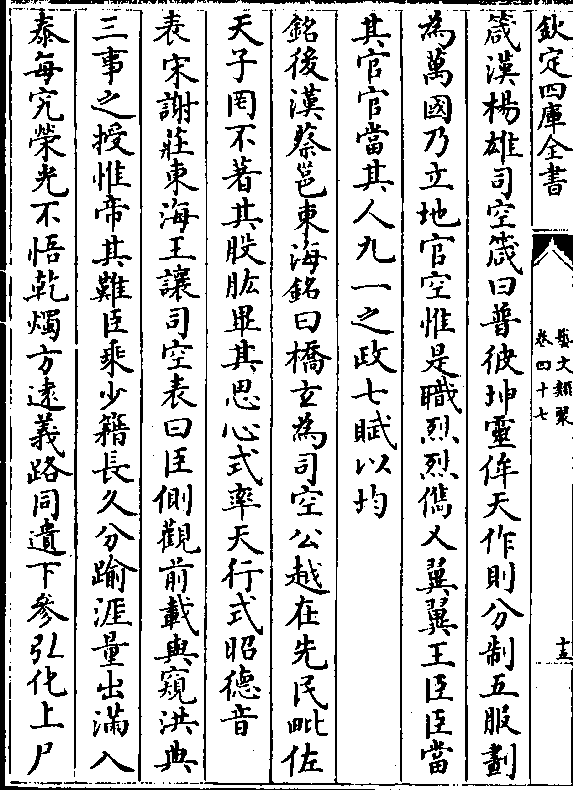 欽定四庫全書
藝文類聚
卷四十七
十五
箴漢楊雄司空箴曰普彼坤靈侔天作則分制五服劃
為萬國乃立地官空惟是職烈烈儁乂翼翼王臣臣當
其官官當其人九一之政七賦以均
銘後漢蔡邕東海銘曰橋玄為司空公越在先民毗佐
天子罔不著其股肱畢其思心式率天行式昭德音
表宋謝莊東海王讓司空表曰臣側觀前載與窺洪典
三事之授惟帝其難臣乘少籍長久分踰涯量出滿入
泰每宂榮光不悟乾燭方遠義路同遺下參引化上尸